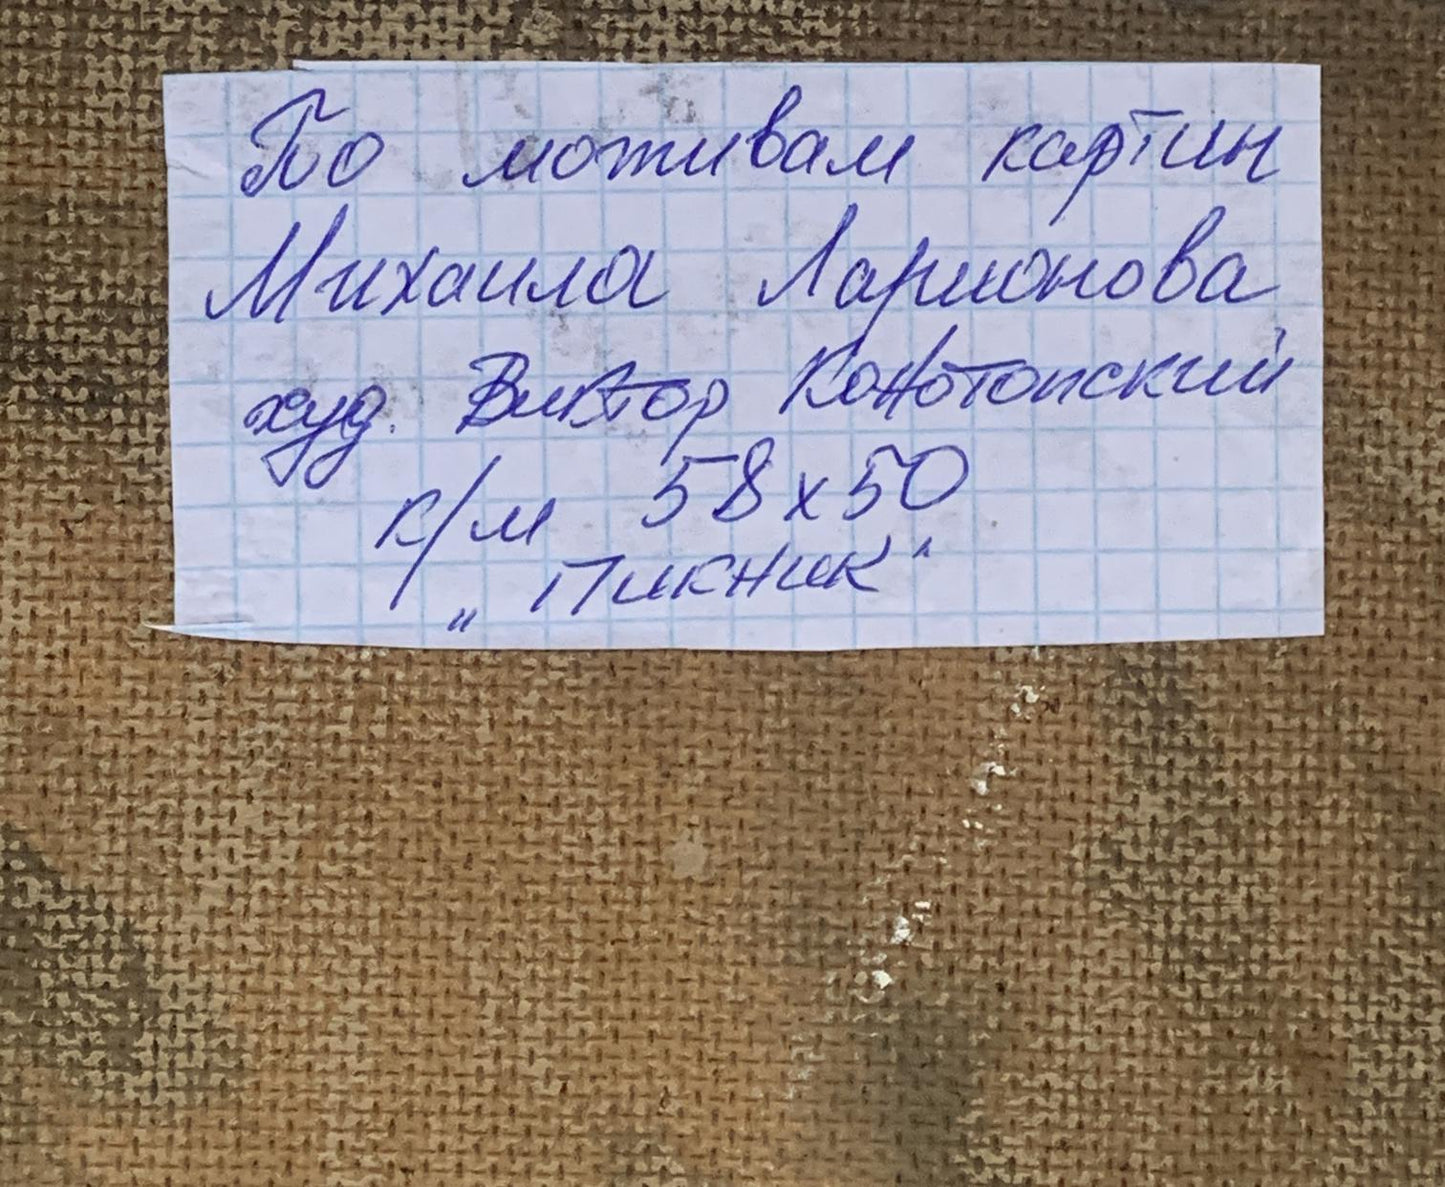 По мотивам картин
Михаила Ларионова
худ. Виктор Конотопский
к/м 58х50
„Пикник“